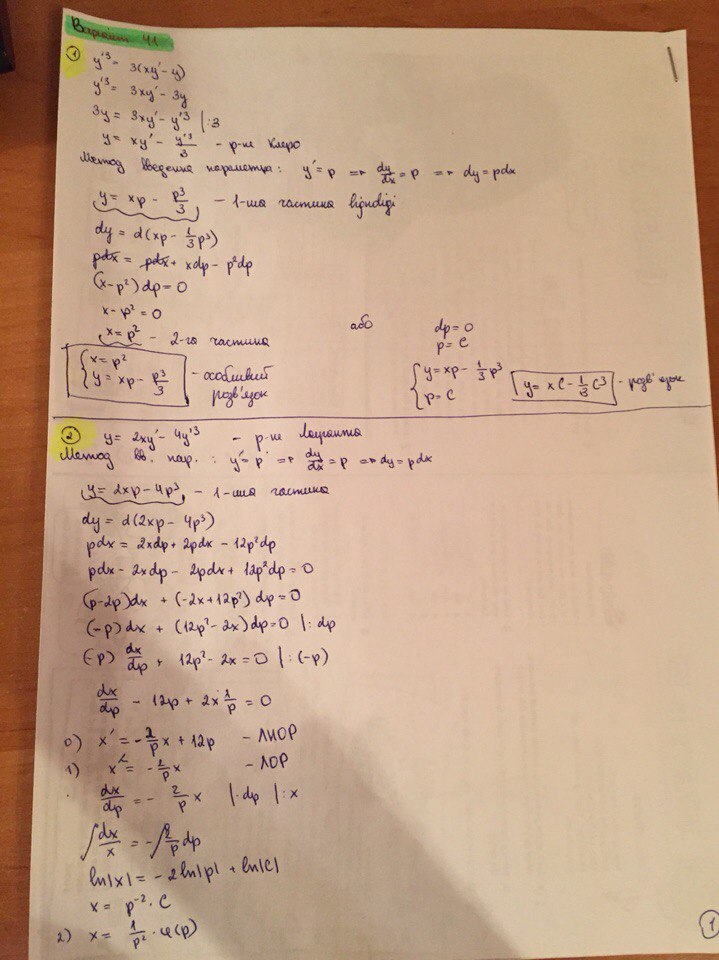 Варіант 41
① y'³ = 3(xy' - y)
y'³ = 3xy' - 3y
3y = 3xy' - y'³ |:3
y = xy' - y'³/3 - р-не Клеро
Метод введення параметра: y' = p => dy/dx = p => dy = pdx
y = xp - p³/3 - 1-ша частина відповіді
dy = d(xp - 1/3 p³)
pdx = pdx + xdp - p²dp
(x-p²)dp = 0
x - p² = 0 або dp = 0
x = p² - 2-га частина p = C
{ x = p² y = xp - p³/3 - особливий розв'язок
{ y = xp - 1/3 p³ p = C y = xC - 1/3 C³ - розв'язок
② y = 2xy' - 4y'³ - р-не Лагранжа
Метод вв. пар.: y' = p => dy/dx = p => dy = pdx
y = 2xp - 4p³ - 1-ша частина
dy = d(2xp - 4p³)
pdx = 2xdp + 2pdx - 12p²dp
pdx - 2xdp - 2pdx + 12p²dp = 0
(p-2p)dx + (-2x+12p²)dp = 0
(-p)dx + (12p² - 2x)dp = 0 |:dp
(-p) dx/dp + 12p² - 2x = 0 |:(-p)
dx/dp - 12p + 2x 1/p = 0
0) x' = -2/p x + 12p - ЛНОР
1) x' = -2/p x - ЛОР
dx/dp = - 2/p x |·dp |:x
∫dx/x = -∫2/p dp
ln|x| = -2ln|p| + ln|C|
x = p⁻² · C
2) x = 1/p² · φ(p)
1